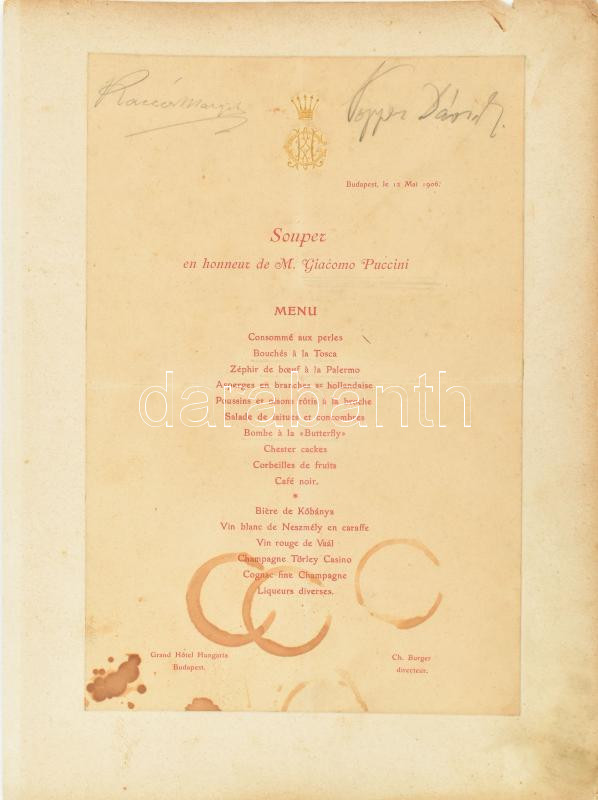 Popper Dávid.
Budapest, le 12 Mai 1906.
Souper
en honneur de M. Giacomo Puccini
MENU
Consommé aux perles
Bouchés à la Tosca
Zéphir de bœuf à la Palermo
Asperges en branches sce hollendaise
Poussins et oisons rôtis à la broche
Salade de laitues et concombres
Bombe à la «Butterfly»
Chester cackes
Corbeilles de fruits
Café noir.
*
Bière de Kőbánya
Vin blanc de Neszmély en caraffe
Vin rouge de Vaál
Champagne Törley Casino
Cognac fine Champagne
Liqueurs diverses.
Grand Hôtel Hungaria
Budapest.
Ch. Burger
directeur.
darabanth